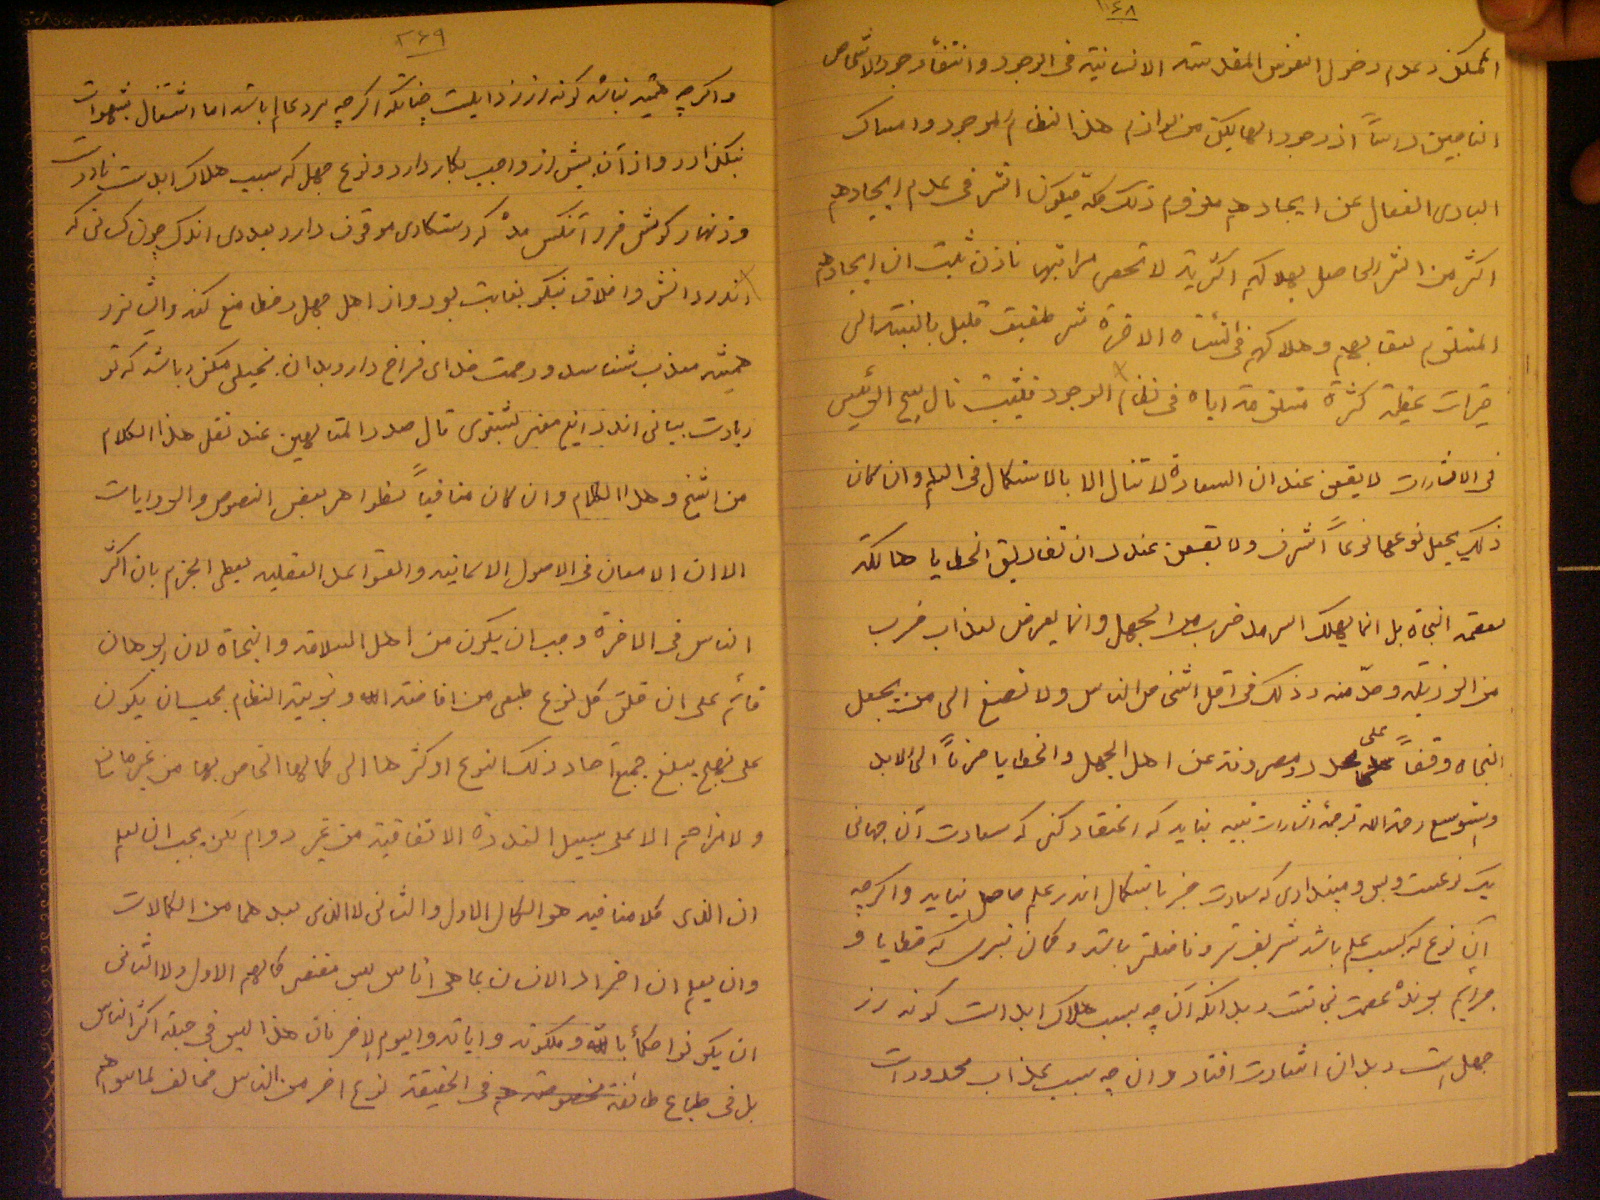 ۱۶۸
الممکن و عدم دخول النفوس المقدسة الانسانیة فی الوجود و انتفأ وجود الاشخاص
الناجین رأساً اذ وجود الهالکین من لوازم هذا النظام الموجود و امساک
الباری الفعال عن ایجادهم ملزوم ذلک کله فیکون الشر فی عدم ایجادهم
اکثر من الشر الحاصل بهلاکهم اکثریة لا تحصی مراتبها فاذن ثبت ان ایجادهم
المستلزم لعقابهم و هلاکهم فی النشأة الاخرة شر طفیف قلیل بالنسبة الی
خیرات عظیمة کثیرة مستلزمة ایاه فی نظام الوجود فلیثبت قال الشیخ الرئیس
فی الاشارات لا یقعن عندک ان السعادة لا تنال الا بالاستکمال فی العلم و ان کان
ذلک یجعل نوعها نوعاً اشرف و لا یقعن عندک ان تفاریق الخطایا هاتکة
لعصمة النجاة بل انما یهلک السرمد ضرب من الجهل و انما یعرض لعذاب ضرب
من الرذیلة و حدّ منه و ذلک فی اقل اشخاص الناس و لا تصغ الی من یجعل
النجاه وقفاً علی عدد و مصروفة عن اهل الجهل و الخطایا صرفاً الی الابد
و استوسع رحمة الله ترجمهٔ اشارات نباید که اعتقاد کنی که سعادت آن جهانی
یک نوعست و بس و مپنداری که سعادت جز باستکمال اندر علم حاصل نیاید و اگرچه
آن نوع که بسبب علم باشد شریف‌تر و فاضلتر باشد و گمان نبری که خطایا و
جرایم برندهٔ عصمت نجاتست و بدانکه آنچه بسبب هلاک ابد است گونه از
جهل است و بدان اشارت افتاد و آنچه سبب عذاب محدود است
۳۶۹
و اگرچه همیشه نباشد گونه از رذایلست چنانکه اگرچه مرد عالم باشد اما اشتغال بشهوات
نبگذارد و از آن بیش از واجب بکار دارد و نوع جهل که سبب هلاک ابد است نادر
و زنهار گوش فرا آنکس مده که رستگاری موقوف دارد بعددی اندک چون کسانی که
اندر دانش و اخلاق نیکو بغایت بود و از اهل جهل و خطا منع کند و ایشانرا
همیشه معذب شناسد و رحمت خدای فراخ دار و بدان بخیلی مکن و باشد که تو
زیادت بیانی اندر این معنی بشنوی قال صدر المتالهین عند نقل هذا الکلام
من الشیخ و هذا الکلام و ان کان منافیاً لظواهر بعض النصوص و الروایات
الا ان الامعان فی الاصول الایمانیه و القواعد العقلیه یعطی الجزم بان اکثر
الناس فی الاخرة وجب ان یکون من اهل السلامة و النجاة لان البرهان
قائم علی ان خلق کل نوع طبعی من افاضة الله و تجربة النظام بحیث ان یکون
علی نهج یبلغ جمیع آحاد ذلک النوع او اکثرها الی کمالها الخاص بها من غیر مانع
و لا مزاحم الا علی سبیل الندرة الاتفاقیة من غیر دوام لکن یجب ان یعلم
ان الذی کلامنا فیه هو الکمال الاول و الثانی لا الذی بعدهما من الکمالات
و ان یعلم ان افراد الانسان بما هی اناس لیس مقتضی کمالهم الاول و لا الثانی
ان یکونوا حکمأ بالله و ملکوته و ایاته و الیوم الاخر فان هذا لیس فی جبلة اکثر الناس
بل فی طباع طائفة مخصوصة هم فی الحقیقة نوع اخر من الناس مخالف لما سواهم